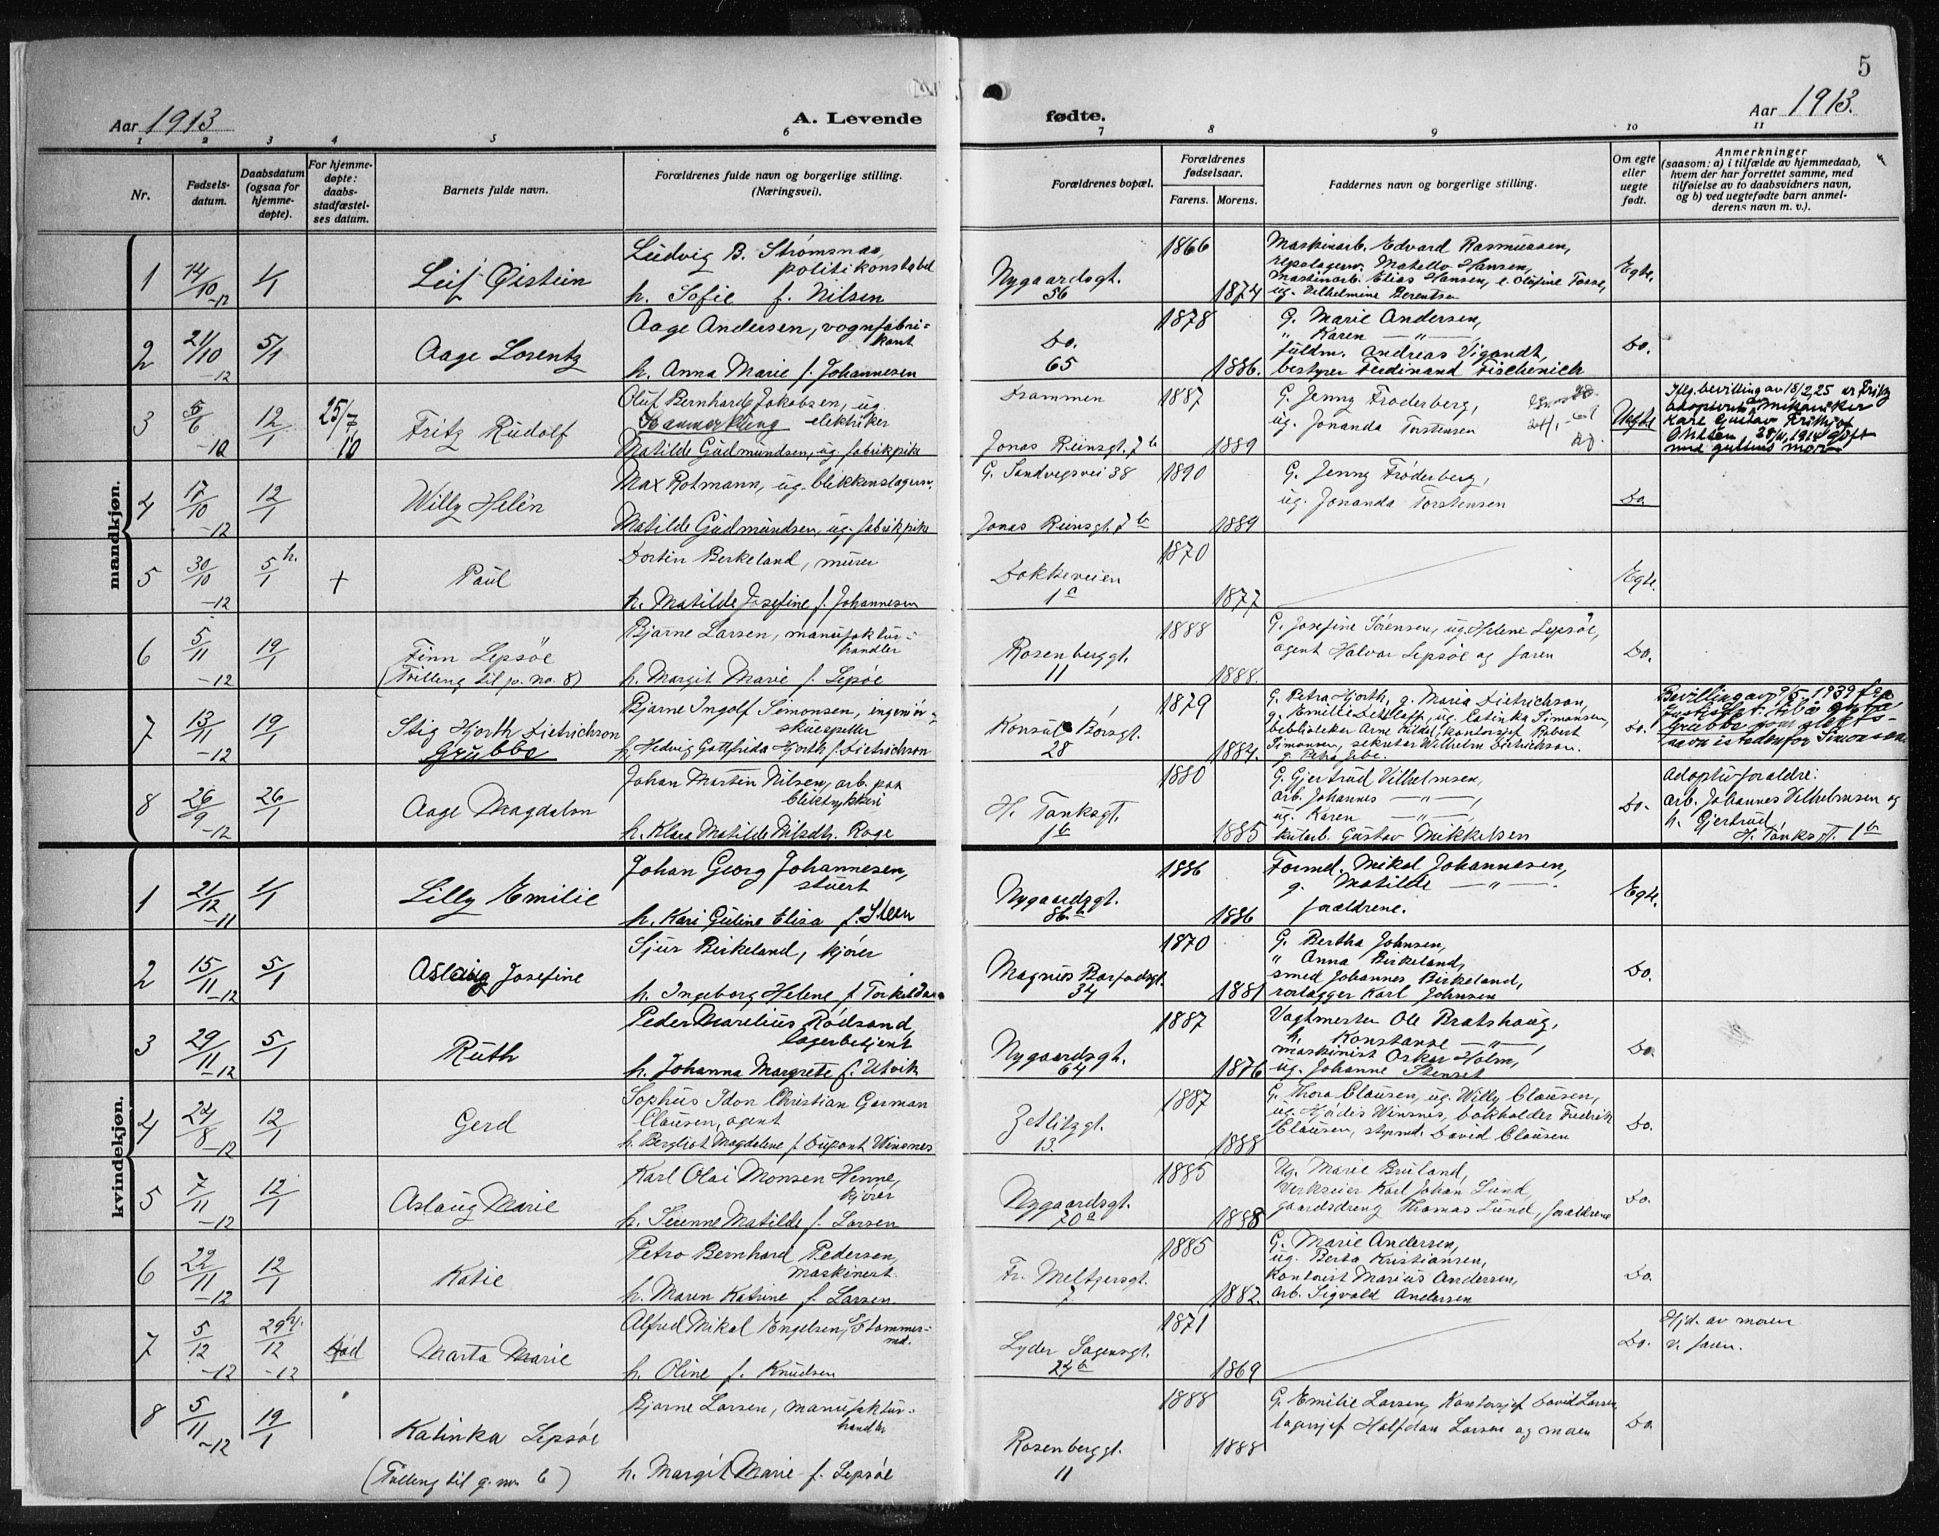 5
Aar 1913
A. Levende
fødte.
Aar 1913.
1 2 3 4 5 6 7 8 9 10 11
Nr.
Fødsels-
datum.
Daabsdatum
(ogsaa for
hjemme-
døpte).
For hjemme-
døpte:
daabs-
stadfæstel-
ses datum.
Barnets fulde navn.
Forældrenes fulde navn og borgerlige stilling.
(Næringsvei).
Forældrenes bopæl.
Forældrenes
fødselsaar.
Farens. Morens.
Faddernes navn og borgerlige stilling.
Om egte
eller
uegte
født.
Anmerkninger
(saasom: a) i tilfælde av hjemmedaab,
hvem der har forrettet samme, med
tilføielse av to daabsvidners navn,
og b) ved uegtefødte barn anmel-
derens navn m. v.).
mandkjøn.
1 14/10 -12 1/1 Leif Øistein
Ludvig B. Strømsnes,
politikonstabel
h. Sofie f. Nilsen
Nygaardsgt.
56
1866 1874
Maskinarb. Edvard Rasmussen,
repslagerv. Matello Hansen,
maskinarb. Elias Hansen, e. Olufine Fosse,
ug. Vilhelmine Berentsen
Egte.
2 21/10 -12 5/1 Aage Lorentz
Aage Andersen, vognfabri-
kant
h. Anna Marie f. Johannesen
Do.
65
1878 1886.
G. Marie Andersen,
" Karen — " —
fuldm. Andreas Vigandt,
bestyrer Ferdinand Fischenich
Do.
3 5/6 -12 12/1 25/7 10 Fritz Rudolf
Oluf Bernhard Jakobsen, ug.
elektriker
Matilde Gudmundsen, ug. fabrikpike
Drammen
Jonas Reinsgt. 7 b
1887 1889
G. Jenny Frøderberg,
ug. Jonanda Torstensen
Uegte
Kfg. bevilling av 18/2 25 er Fritz
adoptert av mekaniker
Karl Gustav Fritjof
med guttens mor
4 17/10 -12 12/1 Willy Helén
Max Rotmann, ug. blikkenslagersv.
Matilde Gudmundsen, ug. fabrikpike
G. Sandvigsvei 38
Jonas Reinsgt. 7 b
1890 1889
G. Jenny Frøderberg,
ug. Jonanda Torstensen
Do
5 30/10 -12 5/1 h. + Paul
Dortin Berkeland, murer
h. Matilde Josefine f. Johannesen
Dokkeveien
1 a
1870 1877
Egte.
6 5/11 -12 19/1 Finn Lepsøe
(Tvilling til p. no. 8)
Bjarne Larsen, manufaktur-
handler
h. Margit Marie f. Lepsøe
Rosenberggt.
11
1888 1888.
G. Josefine Sørensen, ug. Helene Lepsøe,
agent Halvar Lepsøe og faren
Do.
7 13/11 -12 19/1 Stig Hjorth Dietrichson
Grubbe
Bjarne Ingolf Simonsen, ingeniør-
skuespiller
h. Hedvig Gottfrida Hjorth f. Dietrichson
Konsul Børsgt.
28
1879 1884.
G. Petra Hjorth, g. Maria Dietrichson,
g. Emilli Detlaff, ug. Catinka Simonsen,
bibliotekar Arne Kildal, kontorsjef Robert
Simonsen, sekretær Wilhelm Dietrichson.
g. Petra Jebe.
Do.
Bevilling av 9/5 1939 fra
Grubbe som slekts-
navn istedenfor Simonsen
8 26/9 -12 26/1 Aage Magdalon
Johan Martin Nilsen, arb. paa
bliktrykkeri
h. Klara Matilde Nilsdtr. Roge
H. Tanksgt.
1 b
1880 1885
G. Gjertrud Vilhelmsen,
arb. Johannes — " —,
ug. Karen — " —,
kutarb. Gustav Mikkelsen
Do.
Adoptivforældre:
arb. Johannes Vilhelmsen og
h. Gjertrud
H. Tanksgt. 1 b
kvindekjøn.
1 21/12 -11 1/1 Lilly Emilie
Johan Georg Johannesen,
stuert
h. Kari Guline Elisa f. Steen
Nygaardsgt.
86 b
1886 1886
Formd. Mikal Johannesen,
g. Matilde — " —
forældrene.
Egte.
2 15/11 -12 5/1 Aslaug Josefine
Sjur Birkeland, kjører
h. Ingeborg Helene f. Torkildsen
Magnus Barfodsgt.
34
1870 1881
G. Bertha Johnsen,
" Anna Birkeland,
smed Johannes Birkeland,
rørlægger Karl Johnsen
Do.
3 29/11 -12 5/1 Ruth
Peder Marelius Rødsand,
lagerbetjent
h. Johanna Margrete f. Utvik
Nygaardsgt.
64
1887 1876
Vagtmester Ole Bratshaug,
h. Konstanse — " —,
maskinist Oskar Holm,
ug. Johanne Stenset
Do.
4 24/8 -12 12/1 Gerd
Sophus Idon Christian Garman
Clausen, agent
h. Bergliot Magdalene f. Dupont Winsnes
Zetlitzgt.
13.
1887 1888
G. Thora Clausen, ug. Willy Clausen,
ug. Hjødis Winsnes, bokholder Fredrik
Clausen, styrmd. David Clausen
Do.
5 7/11 -12 12/1 Aslaug Marie
Karl Olai Monsen Henne,
kjører
h. Severine Matilde f. Larsen
Nygaardsgt.
70 a
1885 1888
Ug. Marie Bruland,
Verkseier Karl Johan Lund,
gaardsdreng Thomas Lund, forældrene
Do.
6 22/11 -12 12/1 Katie
Petro Bernhard Pedersen,
maskinist.
h. Maren Katrine f. Larsen
Fr. Meltzersgt.
7
1885 1882.
G. Marie Andersen,
ug. Berta Kristiansen,
Kontorist Marius Andersen,
arb. Sigvald Andersen
Do.
7 5/12 -12 29/12 hj. -12 død Marta Marie
Alfred Mikal Engelsen,
h. Oline f. Knudsen
Lyder Sagensgt.
24 b
1871 1869
Do.
Hjd. av moren
v. faren.
8 5/11 -12 19/1 Katinka Lepsøe
(Tvilling til g. no. 6)
Bjarne Larsen, manufaktur-
handler
h. Margit Marie f. Lepsøe
Rosenberggt.
11
1888 1888
G. Emilie Larsen, Kontorsjef David Larsen,
lagersjef Halfdan Larsen og moren
Do.